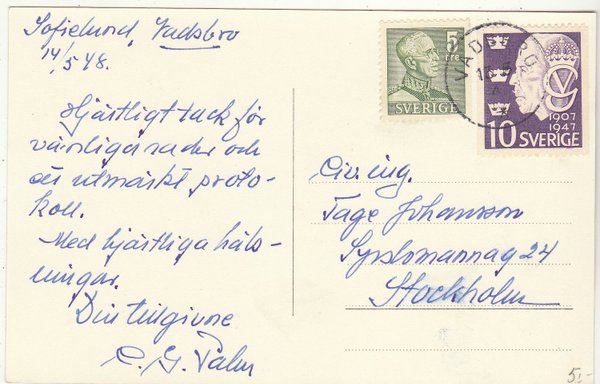 Sofielund, Vadsbro
14/5 48.
Hjärtligt tack för
vänliga rader och
ett utmärkt proto-
koll.
Med hjärtliga häls-
ningar.
Din tillgivne
C. G. Palm
5 ÖRE
SVERIGE
VADSBRO
10 SVERIGE
1907
1947
Civ. ing.
Tage Johansson
Sysslomannag 24
Stockholm
5:-